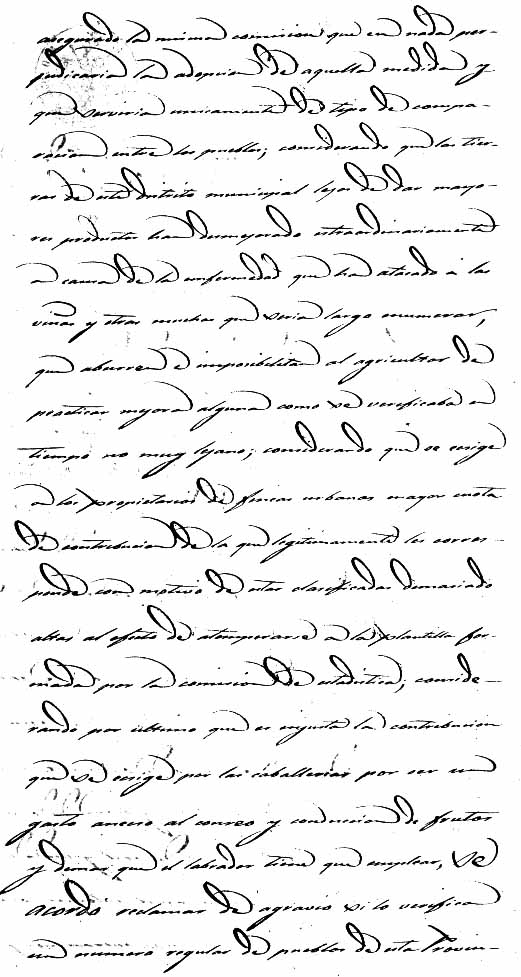 asegurado la misma comision que en nada per-
judicaria la adopcion de aquella medida y
que serviria unicamente de tipo de compa-
racion entre los pueblos; considerando que las tier-
ras de este distrito municipal lejos de dar mayo-
res productos han desmejorado estraordinariamente
a causa de la enfermedad que ha atacado á las
viñas y otras muchas que seria largo enumerar,
que aburren é imposibilitan al agricultor de
practicar mejora alguna como se verificaba en
tiempo no muy lejano; considerando que se ecsige
a los propietarios de fincas urbanas mayor cuota
de contribucion de la que legitimamente les corres-
ponde con motivo de estar clasificadas demasiado
altas al efecto de atemperarse a la plantilla for-
mada por la comision de estadistica; conside-
rando por ultimo que es injusta la contribucion
que se ecsige por las caballerias por ser un
gasto anecso al acarreo y conduccion de frutos
y demas que el labrador tiene que emplear, se
acordó reclamar de agravio si lo verifica
un numero regular de pueblos de esta Provin-